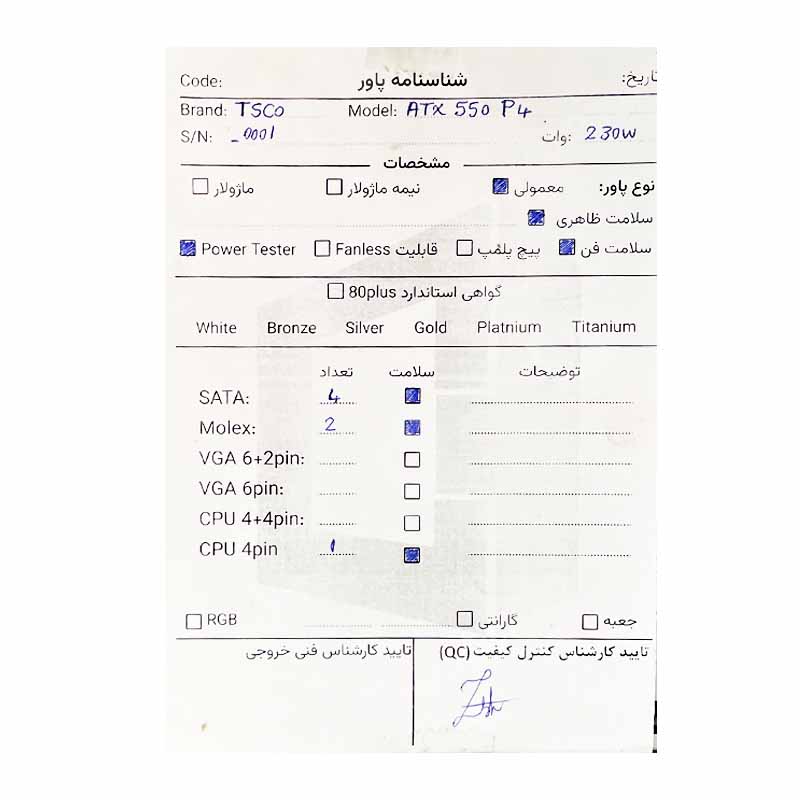 Code: شناسنامه پاور تاریخ:
Brand: TSCO Model: ATX 550 P4
S/N: _0001 وات: 230W
مشخصات
نوع پاور: معمولی نیمه ماژولار ماژولار
سلامت ظاهری
سلامت فن پیچ پلمپ قابلیت Fanless Power Tester
گواهی استاندارد 80plus
White Bronze Silver Gold Platnium Titanium
تعداد سلامت توضیحات
SATA: 4
Molex: 2
VGA 6+2pin:
VGA 6pin:
CPU 4+4pin:
CPU 4pin ۱
RGB گارانتی جعبه
تایید کارشناس کنترل کیفیت (QC) تایید کارشناس فنی خروجی